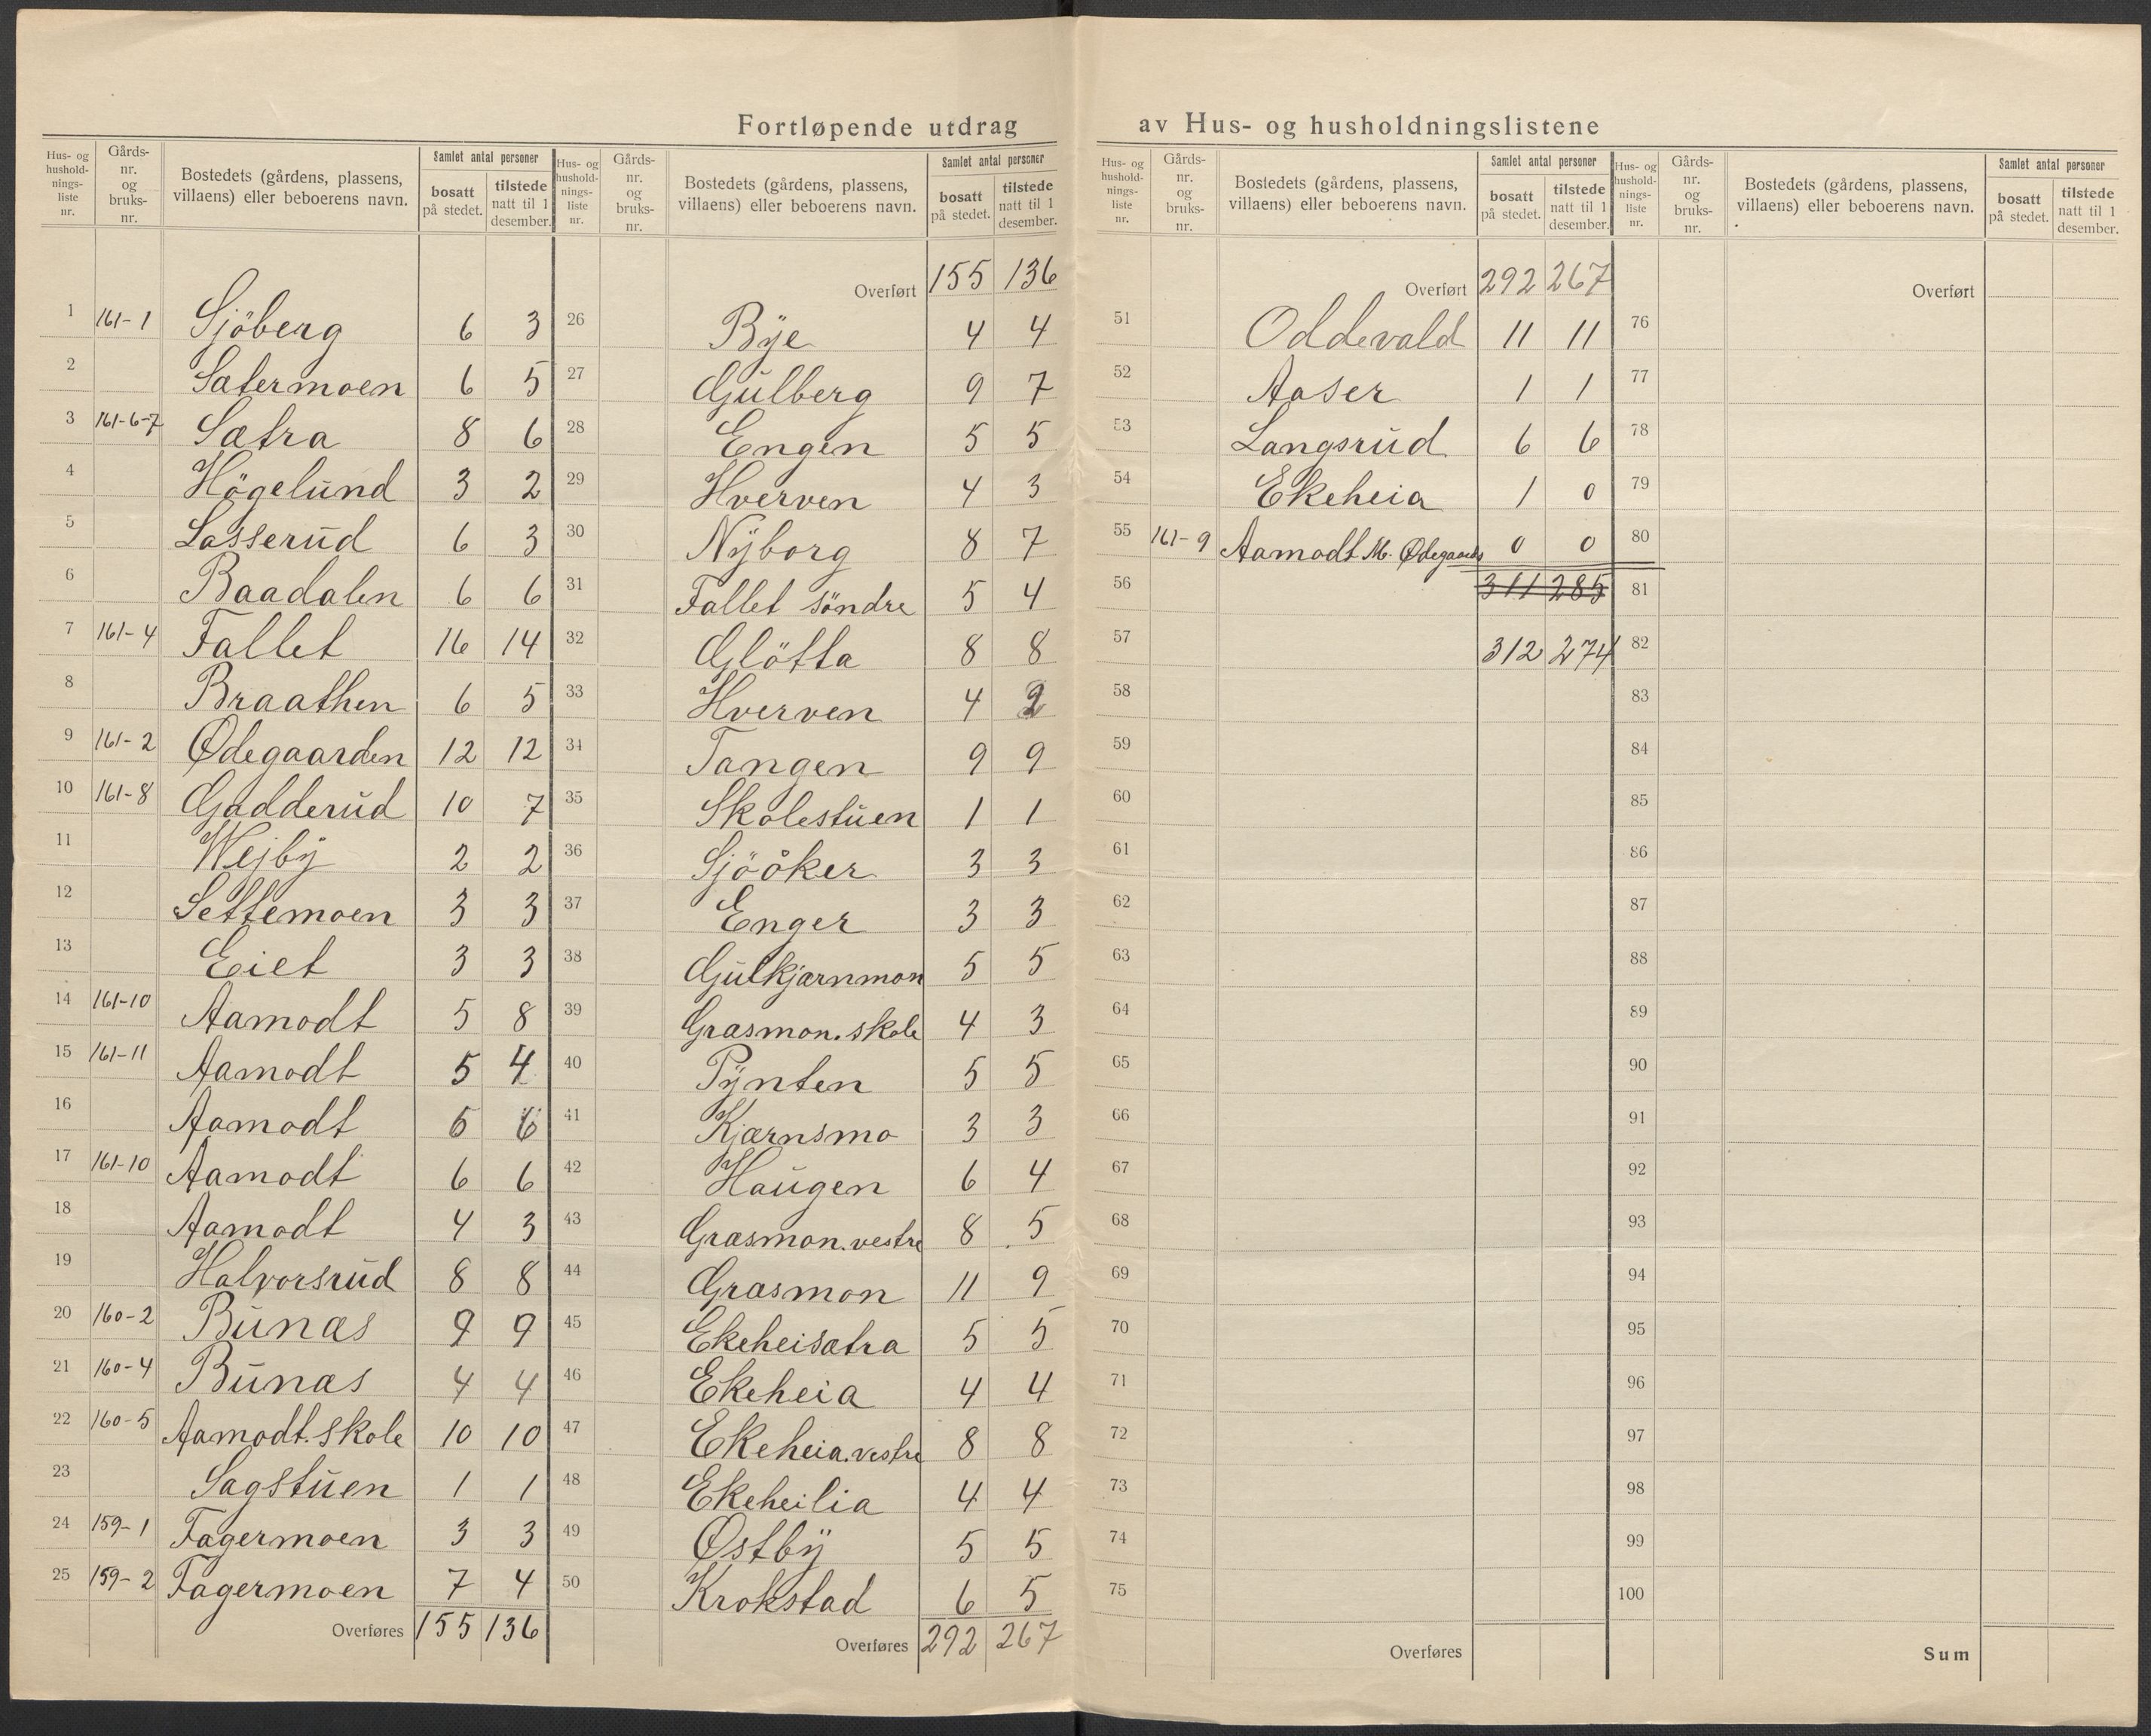 Fortløpende utdrag av Hus- og husholdningslistene
Hus- og hushold-nings-liste nr. Gårds-nr. og bruks-nr. Bostedets (gårdens, plassens, villaens) eller beboerens navn. Samlet antal personer bosatt på stedet. tilstede natt til 1 desember.
1 161-1 Sjöberg 6 3
2 Sætermoen 6 5
3 161-6-7 Sætra 8 6
4 Högelund 3 2
5 Lasserud 6 3
6 Baadalen 6 6
7 161-4 Fallet 16 14
8 Braathen 6 5
9 161-2 Ødegaarden 12 12
10 161-8 Gadderud 10 7
11 Wejby 2 2
12 Settemoen 3 3
13 Eiet 3 3
14 161-10 Aamodt 5 8
15 161-11 Aamodt 5 4
16 Aamodt 6
17 161-10 Aamodt 6 6
18 Aamodt 4 3
19 Halvorsrud 8 8
20 160-2 Bunæs 9 9
21 160-4 Bunæs 4 4
22 160-5 Aamodt. skole 10 10
23 Sagstuen 1 1
24 159-1 Fagermoen 3 3
25 159-2 Fagermoen 7 4
Overføres 155 136
Hus- og hushold-nings-liste nr. Gårds-nr. og bruks-nr. Bostedets (gårdens, plassens, villaens) eller beboerens navn. Samlet antal personer bosatt på stedet. tilstede natt til 1 desember.
Overført 155 136
26 Bye 4 4
27 Gulberg 9 7
28 Engen 5 5
29 Hverven 4 3
30 Nyborg 8 7
31 Fallet söndre 5 4
32 Glötta 8 8
33 Hverven 4 2
34 Tangen 9 9
35 Skolestuen 1 1
36 Sjöåker 3 3
37 Enger 3 3
38 Gulkjærnmon 5 5
39 Grasmon. skole 4 3
40 Pynten 5 5
41 Kjærnsmo 3 3
42 Haugen 6 4
43 Grasmon. vestre 8 5
44 Grasmon 11 9
45 Ekeheisætra 5 5
46 Ekeheia 4 4
47 Ekeheia. vestre 8 8
48 Ekeheilia 4 4
49 Østby 5 5
50 Krokstad 6 5
Overføres 292 267
Hus- og hushold-nings-liste nr. Gårds-nr. og bruks-nr. Bostedets (gårdens, plassens, villaens) eller beboerens navn. Samlet antal personer bosatt på stedet. tilstede natt til 1 desember.
Overført 292 267
51 Oddevald 11 11
52 Aaser 1 1
53 Langsrud 6 6
54 Ekeheia 1 0
55 161-9 Aamodt M. Ødegaards 0 0
56 311 285
57 312 274
58
59
60
61
62
63
64
65
66
67
68
69
70
71
72
73
74
75
Overføres
Hus- og hushold-nings-liste nr. Gårds-nr. og bruks-nr. Bostedets (gårdens, plassens, villaens) eller beboerens navn. Samlet antal personer bosatt på stedet. tilstede natt til 1 desember.
Overført
76
77
78
79
80
81
82
83
84
85
86
87
88
89
90
91
92
93
94
95
96
97
98
99
100
Sum